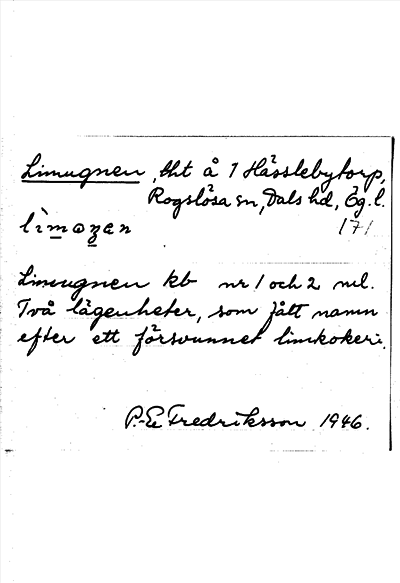 Limugnen, bht å 1 Hässlebytorp,
Rogslösa sn, Dals hd, Ög. l.
lìmɷgen 171
Limugnen kb nr 1 och 2 ml.
Två lägenheter, som fått namn
efter ett försvunnet limkokeri.
P.-E. Fredriksson 1946.